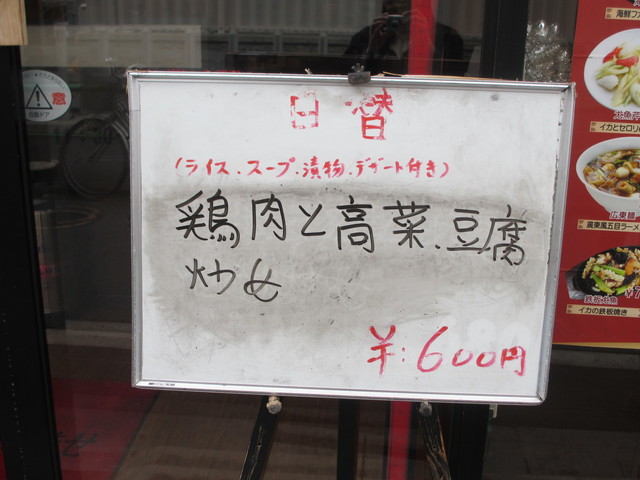 日替
(ライス.スープ.漬物.デザート付き)
鶏肉と高菜.豆腐
炒め
¥:600円
海鮮フ
イカとセロリ
広東麺
広東風五目ラーメ
鉄板尤魚
イカの鉄板焼き
自動ドア